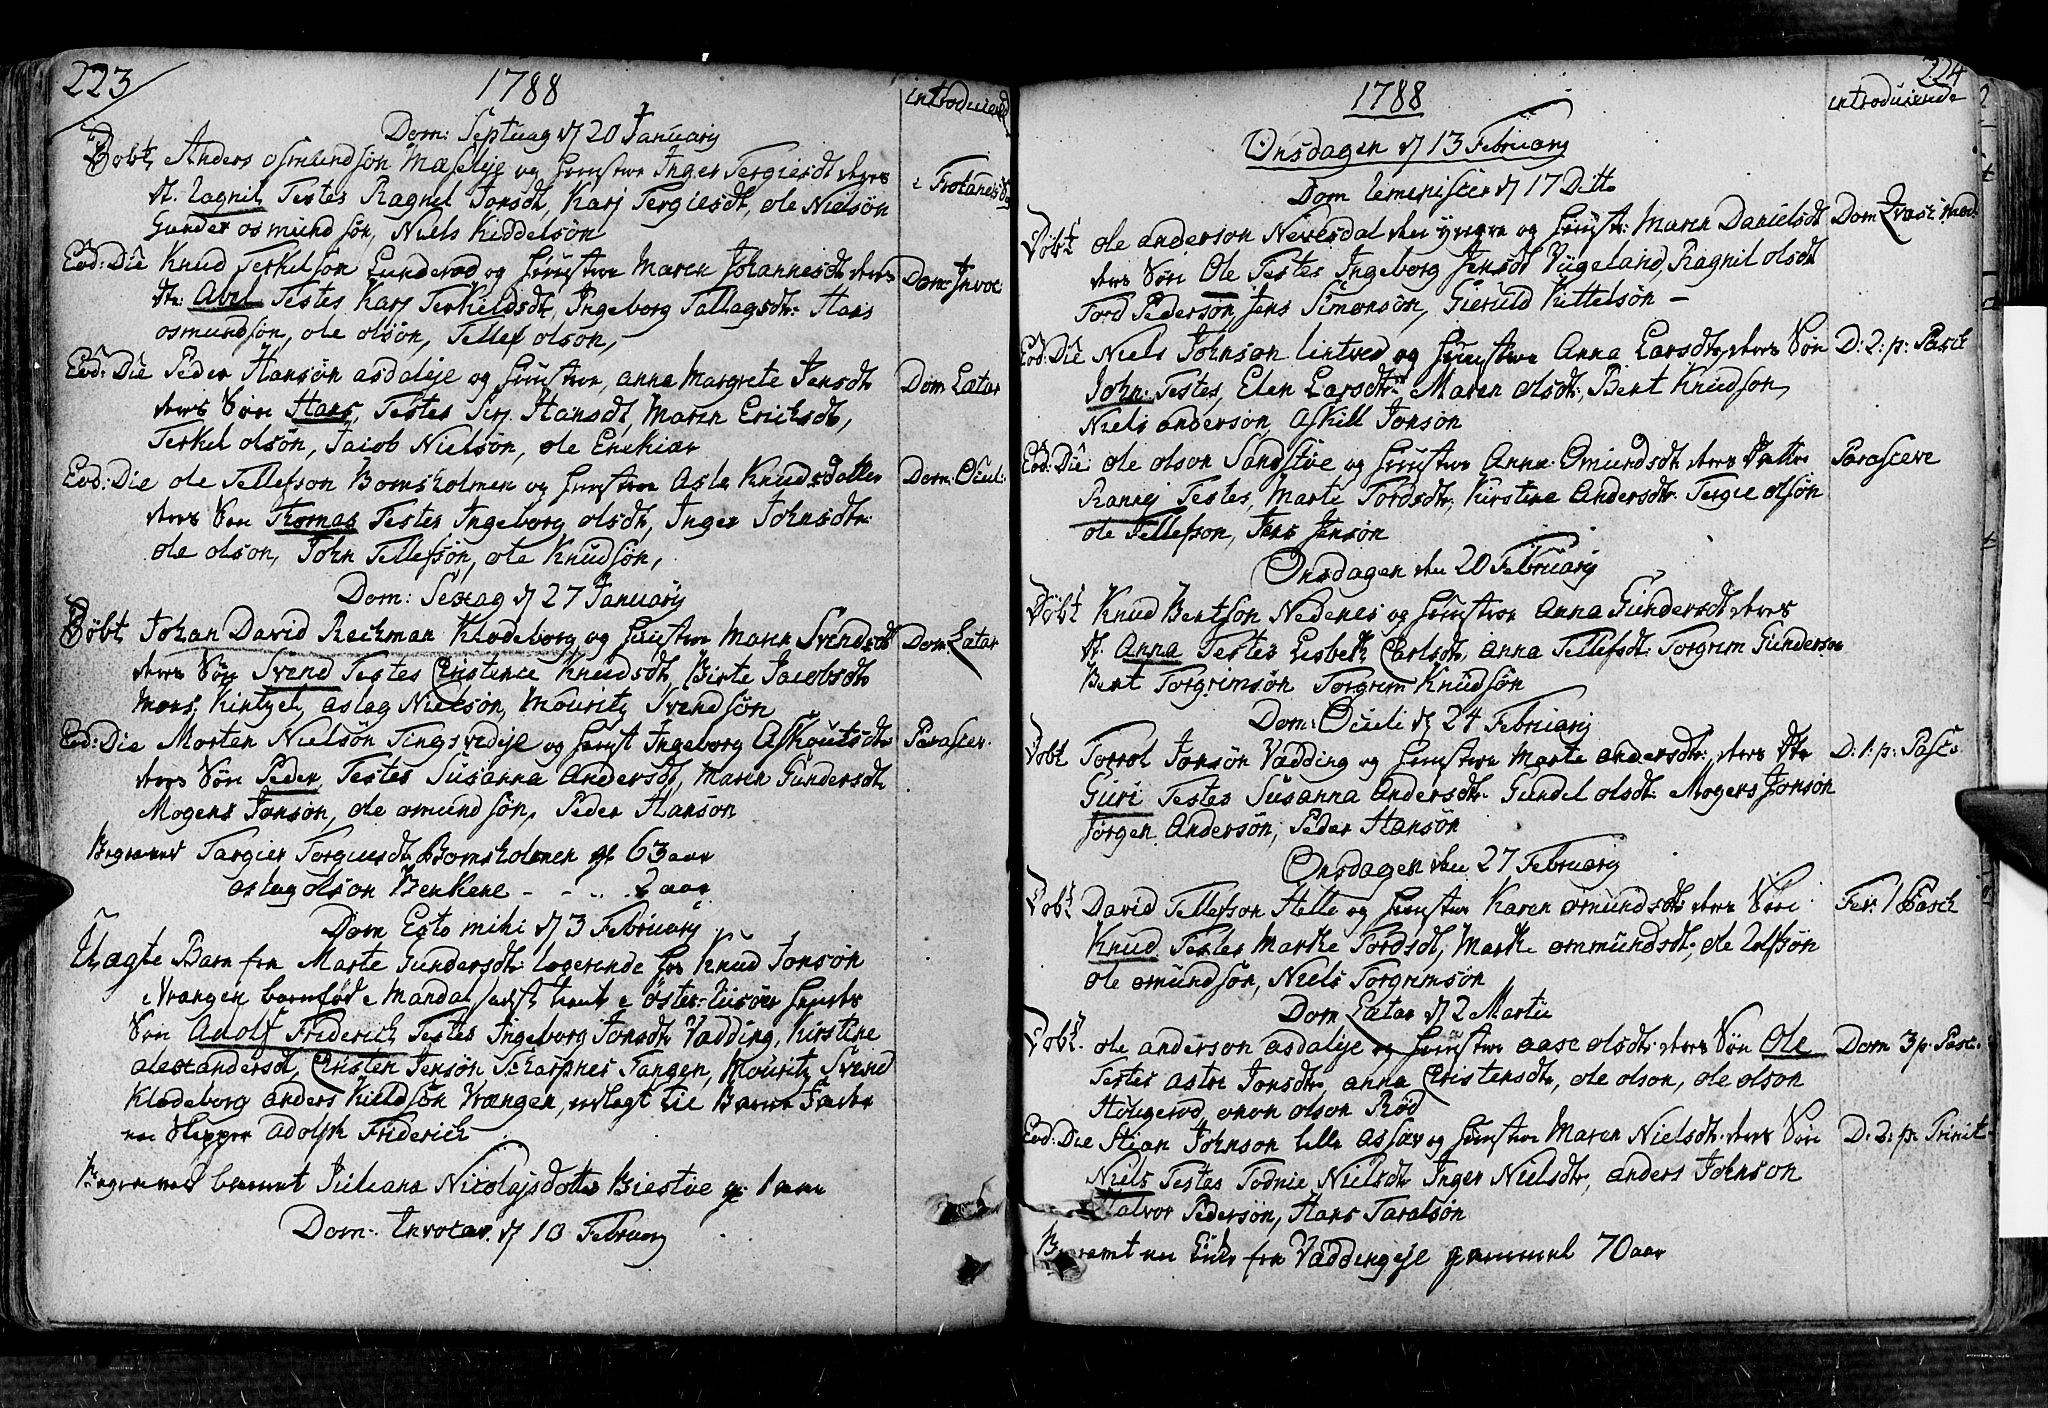 223
1788
introducerede
Dom: Septuag d 20 January
Døbt, Anders osmundsøn Mæselje og hustru Inger Tergiesdt deres
dt. Ragnil Testes Ragnil Jonsdt, Karj Tergiesdt, ole Nielsøn
i Frolands
Gunder osmundsøn, Niels Kiddelsøn
Eod: Die Knud Terkelson Lunderød og hustru Maren Johannesdt deres
Dom: Invoc
dtr: Abel Testes Karj Terkildsdt, Ingeborg Tallagsdt: Hans
osmundsøn, ole olsøn, Tellef olson,
Eod: Die Peder Hansøn asdalsje og hustru, anna Margrete Jensdt
Dom Lætar
deres Søn Hans, Testes Sirj Hansdt, Maren Ericksdt,
Terkel olsøn, Jacob Nielsøn, ole Enekiær
Eod: Die ole Tellefson Bomsholmen og hustrue Asla Knudsdatter
Dom: Oculi
deres Søn Thomas Testes Ingeborg olsdt, Inger Johnsdtr:
ole olson, John Tellefsøn, ole Knudsøn,
Dom: Sexag d 27 January
Døbt Johan David Reckman Klodeborg og hustru Maren Svendsdt
Dom Lætar
deres Søn Svend Testes Christence Knudsdt, Birte Jacobsdt
Mons Kintzel, aslag Nielsøn, Mouritz Svendsøn
Eod: Die Morten Nielsøn Tingsvedsje og hust Ingeborg Askoutsdt
Parascev.
deres Søn Peder Testes Susanna Andersdt, Maren Gundersdt
Mogens Jonsøn, ole omundsøn, Peder Hanson
Begraved Targier Torgiusdt Bomsholmen gl 63 aar
aslag olson Benkene - - - 2 aar
Dom Esto mihi d 3 February
Uægte Barn fra Marte Gundersdt: logerende hos Knud Jonsøn
i Vrangen barnfød i Mandal, sidst tient i Øster-Riisøer hendes
Søn Adolf Friderich Testes Ingeborg Jonsdt Vadding, Kirstine
alexandersdt, Christen Jensøn Skarpnes Tangen, Mouritz Svend
Klodeborg anders Killdsøn Vrangen, udlagt til Barne Fader
en Skipper Adolph Friderich
Begraved barnet Juliana Nicolajsdotter Biestøe gl 1 aar
Dom: Invocav. d 10 February
224
1788
introducerede
Onsdagen d 13 February
Dom Reminiscer d 17 Ditto
Døbt ole anderson Neversdal den yngre og hustr: Maren Danielsdt
Dom Qvasi mod.
deres Søn Ole Testes Ingeborg Jensdt Vugeland, Ragnil olsdt
Tord Pederson Jens Simonsøn, Gieruld Kittelsøn -
Eod: Die Niels Johnson lintved og hustrue Anna Larsdtr deres Søn
D: 2: p: Pasch
John: Testes, Elen Larsdtr, Maren olsdt:, Bent Knudson,
Niels anderson, Askill Jonson
Eod: Die ole olson Sandstøe og hustrue Anna: Omundsdt deres Datter
Parasceve
Rannej Testes, Marte Tordsdt, Kirstine Andersdt: Tergie olsøn
ole Tellefson, Jens Jensøn
Onsdagen den 20 February
Døbt Knud Bentson Nedenes og hustrue Anna Gundersdt deres
dt. Anna Testes Lisbeth Carlsdt, anna Tellefsdt: Torgrim Gunderson
Bent Torgrimsøn Torgrim Knudsøn
Dom: Oculi d 24 February
Døbt Torrol Jonsøn Vadding og hustrue Marte andersdt: deres dtr
D: 1: p: Pasc.
Guri Testes Susanna Andersdt. Gundel olsdt: Mogens Jonsøn
Jørgen Andersøn, Peder Hansøn
Onsdagen den 27 February
Døbt David Tellefsson Helle og hustru Karen omundsdt: deres Søn
Fer: 1 Pasch
Knud Testes Marthe Tordsdt, Marthe ommundsdt:, ole Ulfsøn
ole omundsøn, Niels Torgrimsøn
Dom Lætar d 2 Martii
Døbt. ole anderson asdalsje og hustrue aase olsdt: deres Søn Ole
Dom 3 p. Pasc.
Testes astri Jonsdtr, anna Christensdt, ole olson, ole olson
Haugerød, onon olson Rød
Eod: Die Stian Johnson lille assav og hustrue Maren Nielsdt. deres Søn
D: 2: p: Trinit
Niels Testes Todnie Nielsdt Inger Nielsdtr, anders Johnson
Halvor Pedersøn, Hans Taralsøn
Begravet en Enke fra Vaddingsje gammel 70 aar